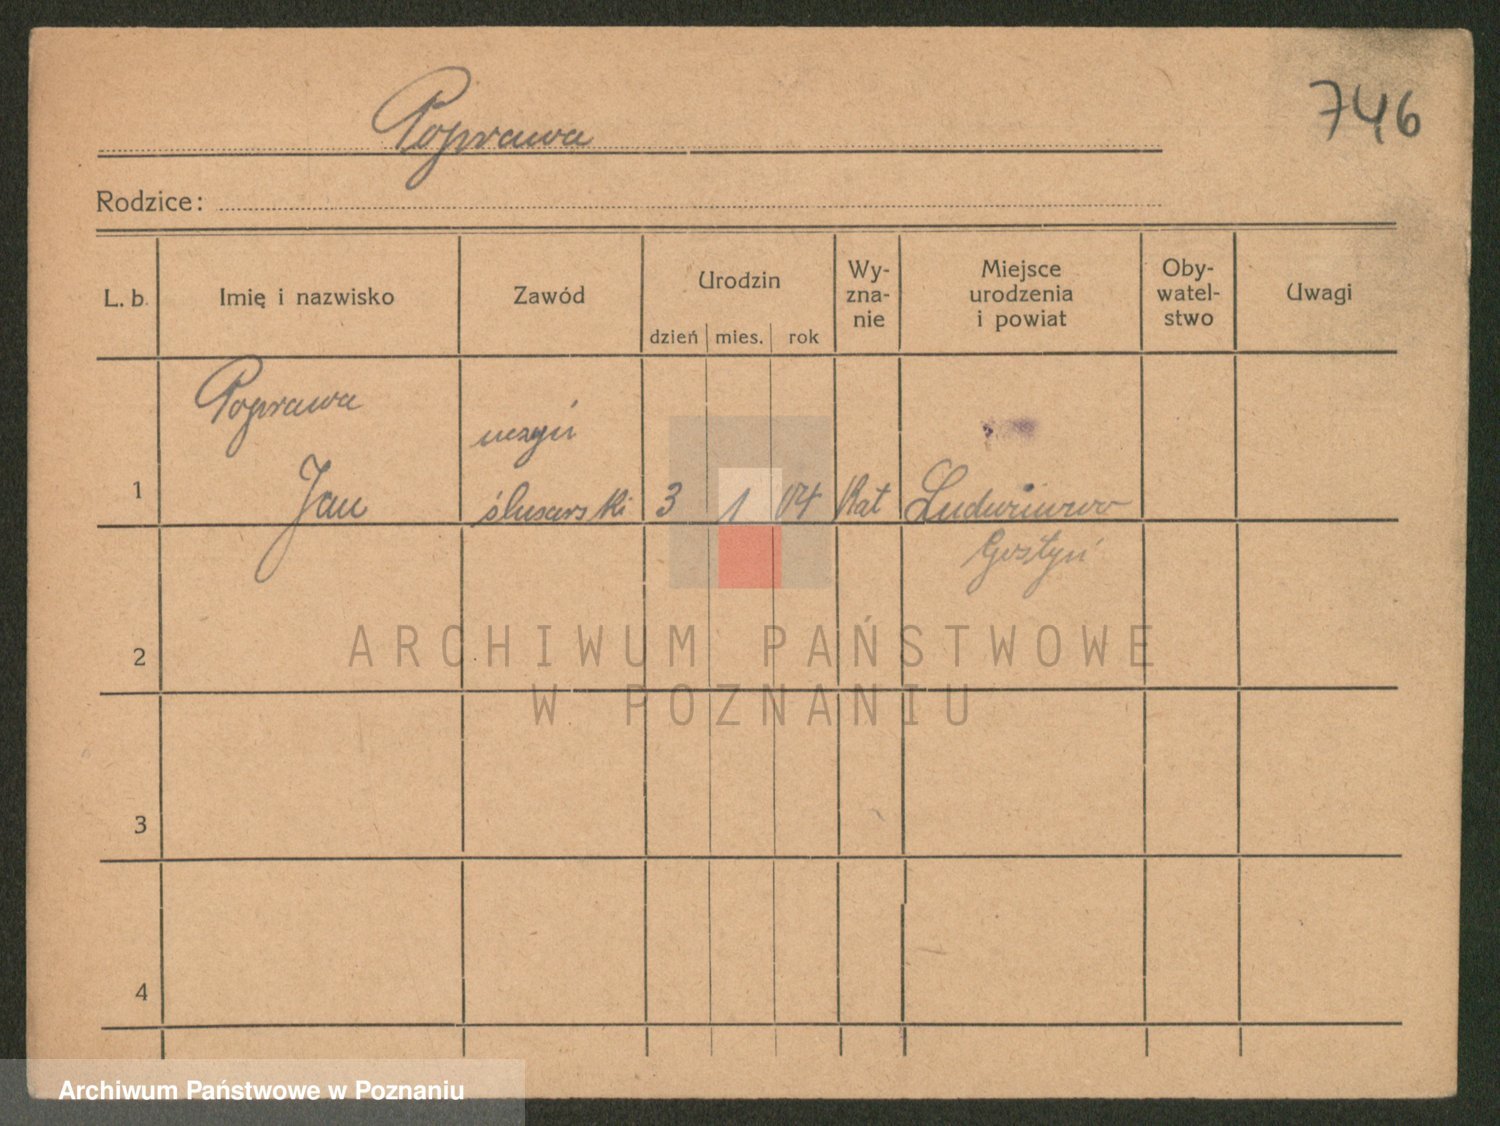 746
Poprawa
Rodzice:
L. b.
Imię i nazwisko
Zawód
Urodzin
dzień
mies.
rok
Wy-
zna-
nie
Miejsce
urodzenia
i powiat
Oby-
watel-
stwo
Uwagi
1
Poprawa
Jan
uczeń
ślusarski
3
1
04
Kat
Ludwinowo
Gostyń
2
3
4
ARCHIWUM PAŃSTWOWE
W POZNANIU
Archiwum Państwowe w Poznaniu